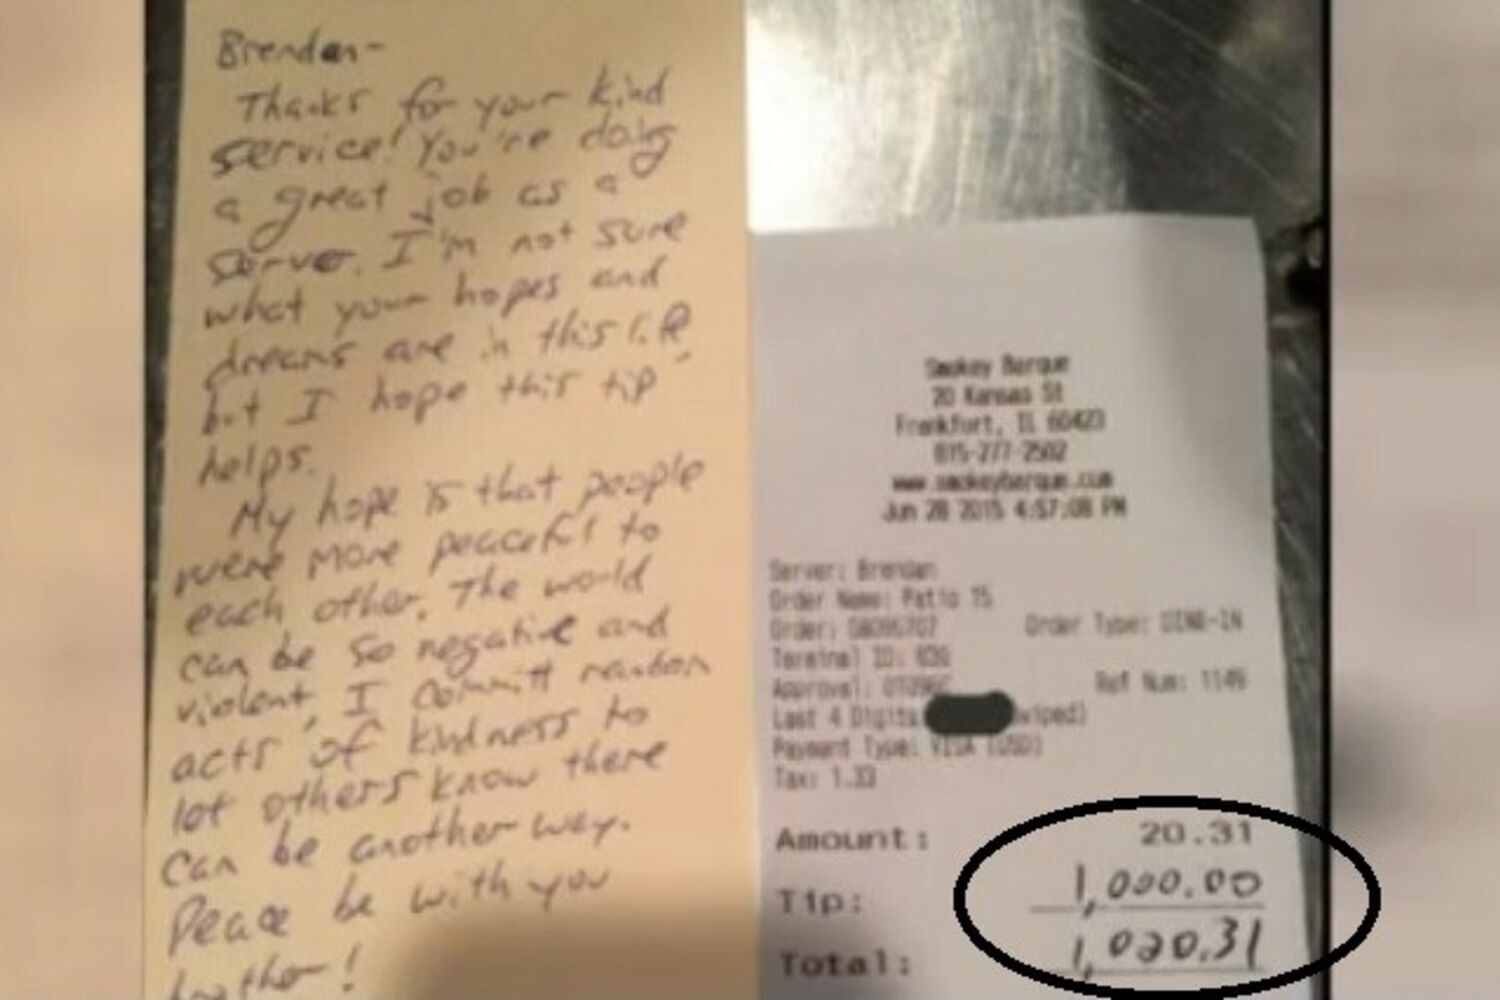 Brendan-
Thanks for your kind
service! You're doing
a great job as a
server. I'm not sure
what your hopes and
dreams are in this life,
but I hope this tip
helps.
My hope is that people
were more peaceful to
each other. The world
can be so negative and
violent, I committ random
acts of kindness to
let others know there
can be another way.
Peace be with you
brother!
Smokey Barque
20 Kansas St
Frankfort, IL 60423
815-277-2502
www.smokeybarque.com
Jun 28 2015 4:57:08 PM
Server: Brendan
Order Name: Patio 15
Order: Order Type: DINE-IN
Terminal ID:
Approval: Ref Num: 1149
Last 4 Digits
Payment Type: VISA (USD)
Tax: 1.33
Amount: 20.31
Tip: 1,000.00
Total: 1,020.31